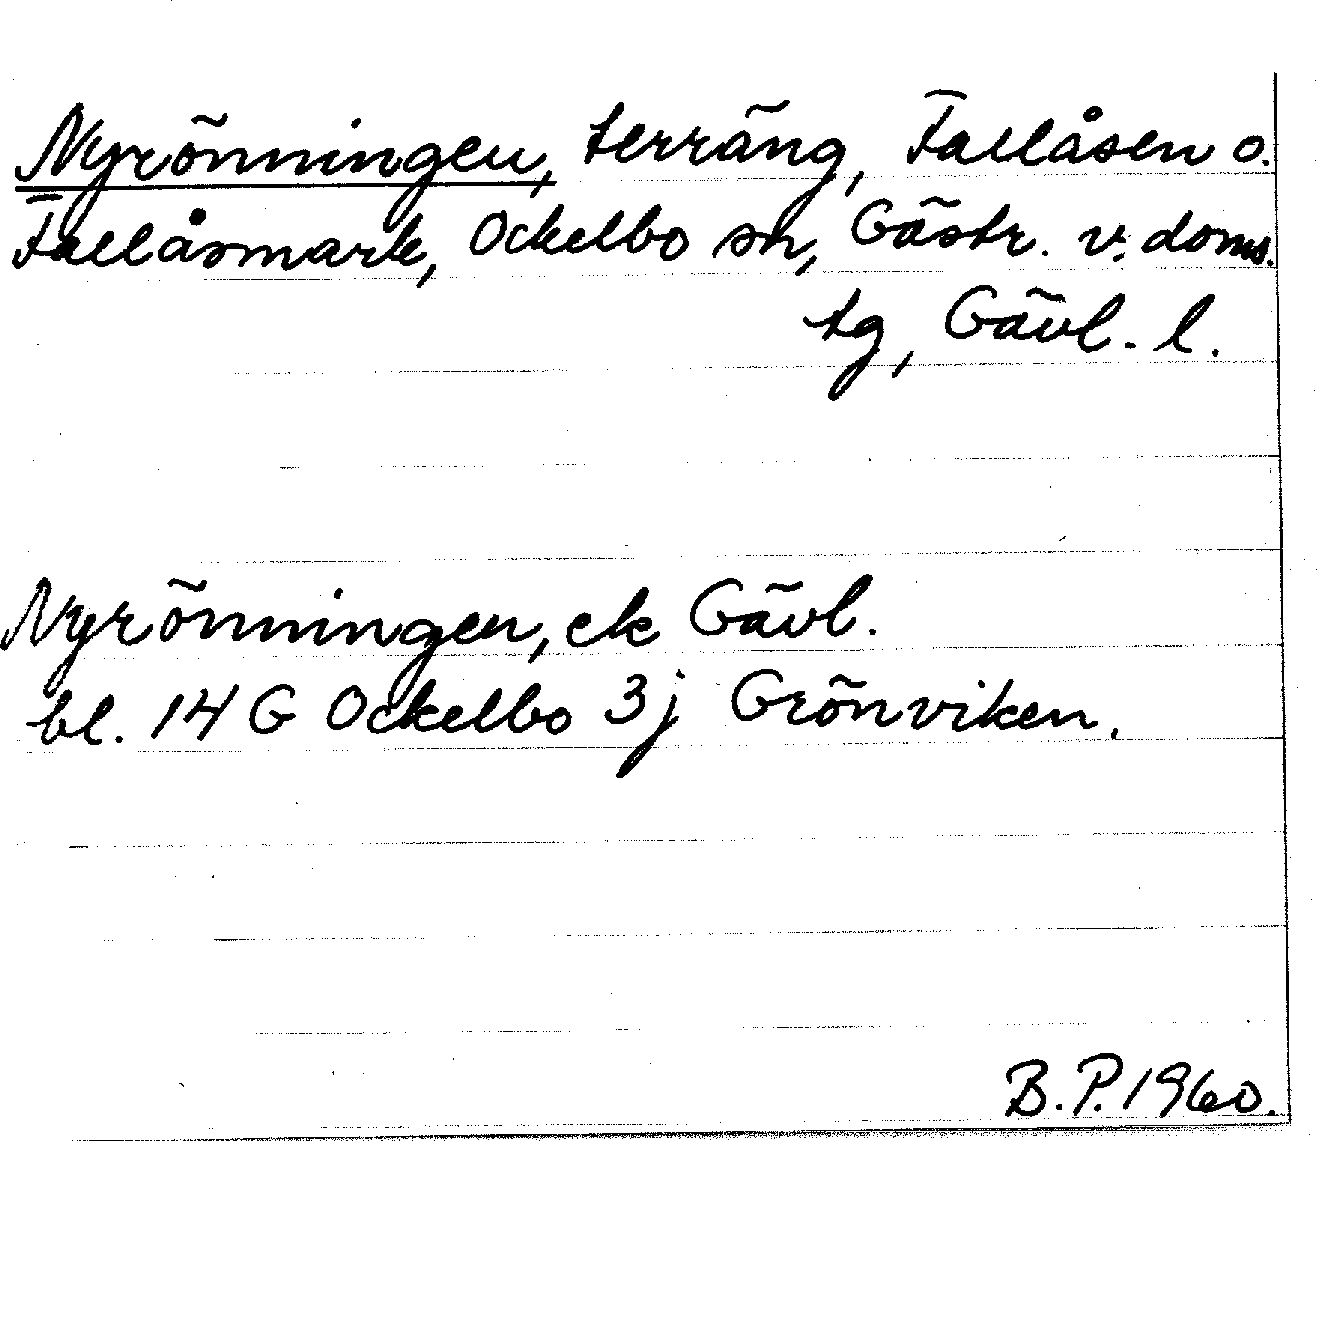 Nyrönningen, terräng, Fallåsen o.
Fallåsmark, Ockelbo sn, Gästr. v. doms.
tg, Gävl. l.
Nyrönningen, ek Gävl.
bl. 14 G Ockelbo 3j Grönviken.
B.P. 1960.